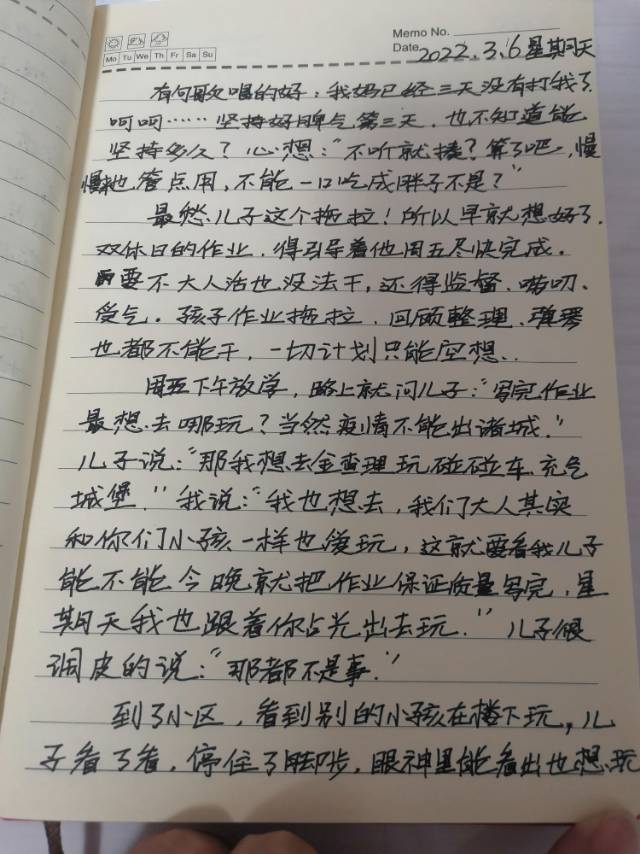 Memo No.
Mo Tu We Th Fr Sa Su
Date 2022.3.6 星期天
有句歌唱的好：我妈已经三天没有打我了
呵呵……坚持好脾气第三天，也不知道能
坚持多久？心想："不听就揍？算了吧，慢
慢地省点用，不能一口吃成胖子不是？"
虽然儿子这个拖拉！所以早就想好了，
双休日的作业，得引导着他周五尽快完成。
要不大人活也没法干，还得监督、唠叨、
受气。孩子作业拖拉，回顾整理、弹琴
也都不能干，一切计划只能空想..
周五下午放学，路上就问儿子："写完作业
最想去哪玩？当然疫情不能出诸城."
儿子说："那我想去金查理玩碰碰车、充气
城堡."我说："我也想去，我们大人其实
和你们小孩一样也爱玩，这就要看我儿子
能不能今晚就把作业保证质量写完，星
期天我也跟着你占光出去玩."儿子很
调皮的说："那都不是事."
到了小区，看到别的小孩在楼下玩，儿
子看了看，停住了脚步，眼神里能看出也想玩